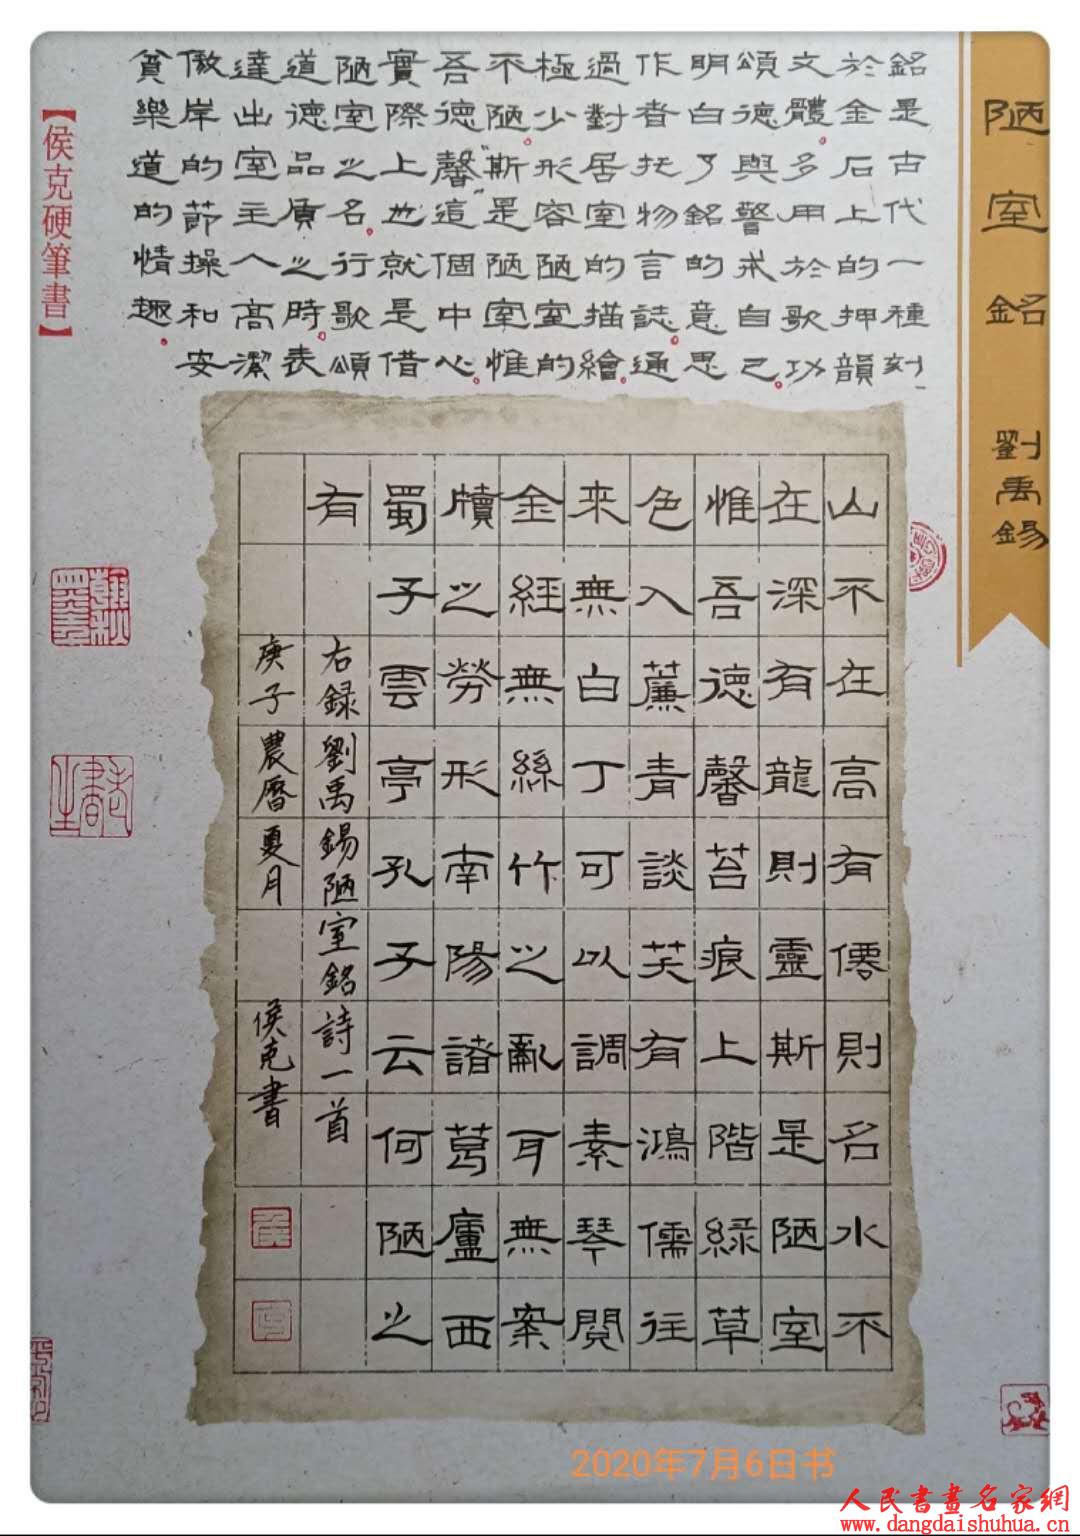 陋室銘 劉禹錫
銘是古代一種刻
於金石上的押韻
文體。多用於歌功
頌德與警戒自己。
明白了銘的意思
作者托物言誌。通
過對居室的描繪。
極少形容陋室的
不陋。"斯是陋室惟
吾德馨"這個中心。
實際上也就是借
陋室之名。行歌頌
道德品質之時。表
達出室主人高潔
傲岸的節操和安
貧樂道的情趣。
【侯克硬筆書】
山不在高有僊則名水不
在深有龍則靈斯是陋室
惟吾德馨苔痕上階緑草
色入簾青談笑有鴻儒往
來無白丁可以調素琴閱
金經無絲竹之亂耳無案
牘之勞形南陽諸葛廬西
蜀子雲亭孔子云何陋之
有
右録劉禹錫陋室銘詩一首
庚子農曆夏月 侯克書
2020年7月6日书
人民書畫名家網
www.dangdaishuhua.cn